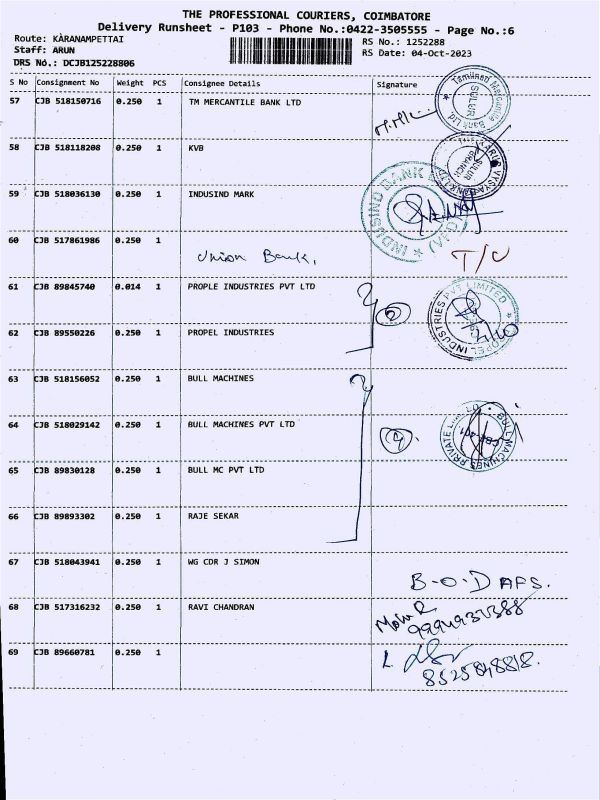 THE PROFESSIONAL COURIERS, COIMBATORE
Delivery Runsheet - P103 - Phone No.:0422-3505555 - Page No.:6
Route: KARANAMPETTAI
Staff: ARUN
DRS No.: DCJB125228806
RS No.: 1252288
RS Date: 04-Oct-2023
S No Consignment No Weight PCS Consignee Details Signature
57 CJB 518150716 0.250 1 TM MERCANTILE BANK LTD
Tamilnad Mercantile Bank Ltd. SULUR
58 CJB 518118208 0.250 1 KVB
SULUR BRANCH
59 CJB 518036130 0.250 1 INDUSIND MARK
INDUSIND BANK
60 CJB 517861986 0.250 1
Union Bank,
61 CJB 89845740 0.014 1 PROPLE INDUSTRIES PVT LTD
2
PROPEL INDUSTRIES PVT LIMITED
62 CJB 89550226 0.250 1 PROPEL INDUSTRIES
63 CJB 518156052 0.250 1 BULL MACHINES
64 CJB 518029142 0.250 1 BULL MACHINES PVT LTD
BULL MACHINES PRIVATE LIMITED
65 CJB 89830128 0.250 1 BULL MC PVT LTD
66 CJB 89893302 0.250 1 RAJE SEKAR
67 CJB 518043941 0.250 1 WG CDR J SIMON
B-O-D AFS.
68 CJB 517316232 0.250 1 RAVI CHANDRAN
69 CJB 89660781 0.250 1
8525848818.